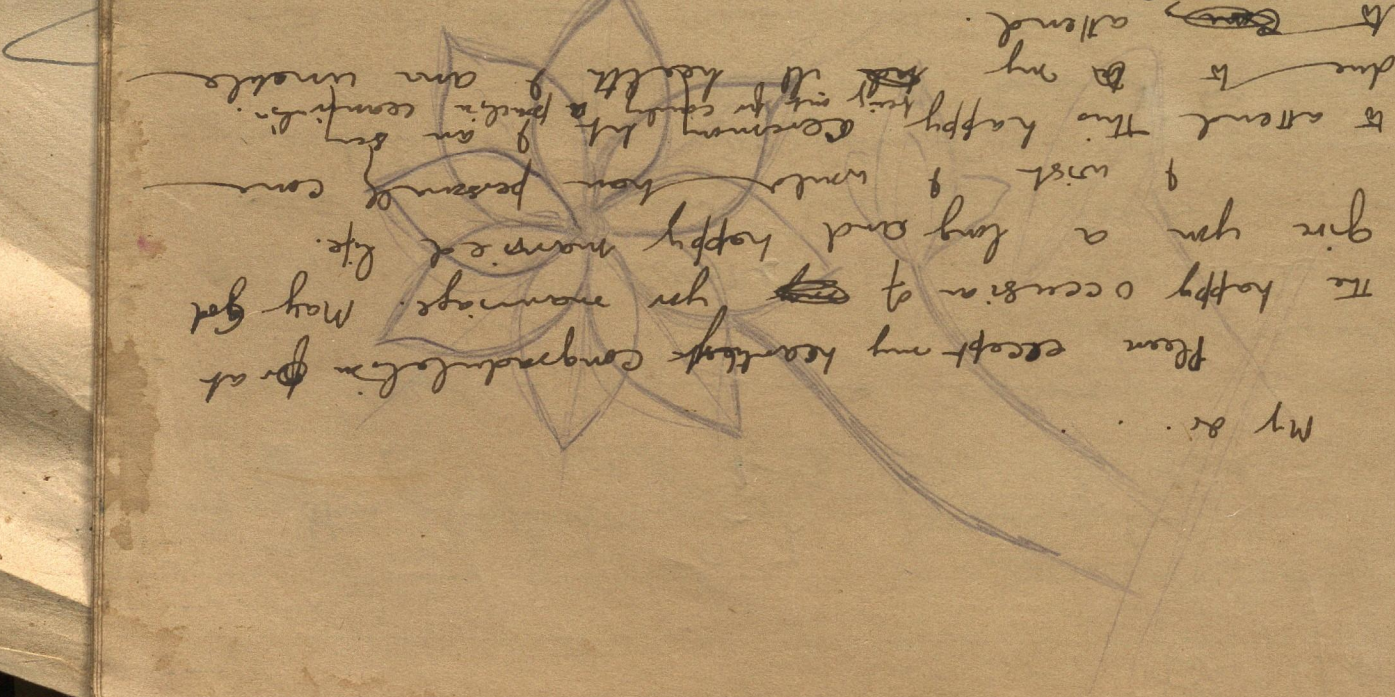 My dr . . .
Pleen except my heartliest congradulation for at
the happy occusion of your marriage. May God
give you a long and happy married life.
I wist I would have personally come
to attend this happy ceremony but I am very
being out for country a
due to my ill health I am uneble
to attend